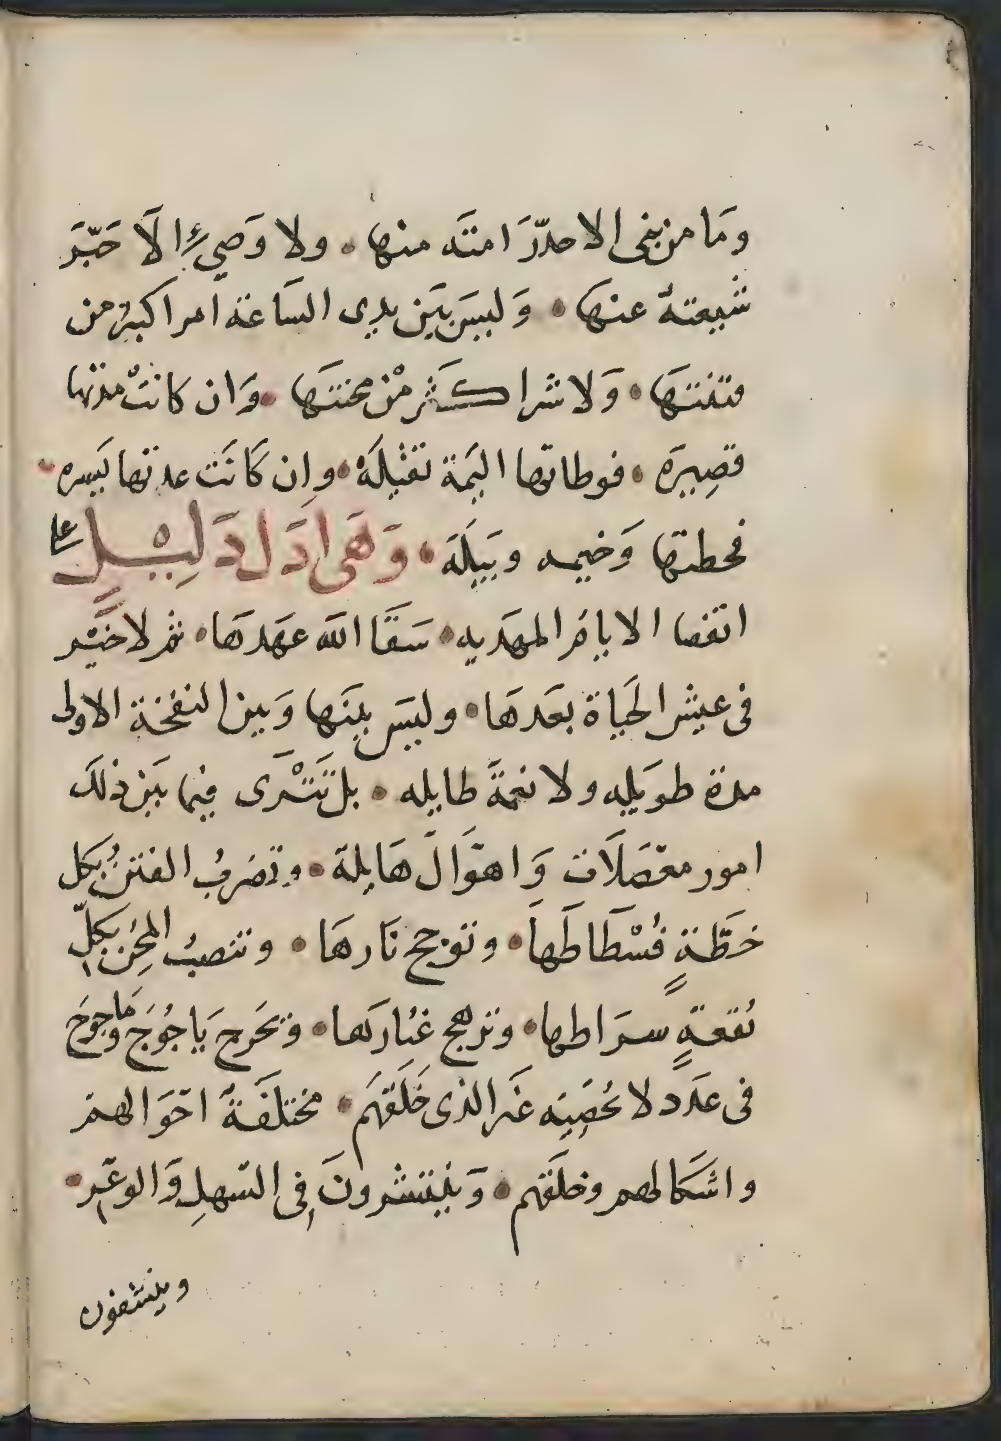 ومَا من نبى الا حذّرَ امتَه منها • ولا وَصيٍّ الَا خَبّرَ
شيعتهُ عنهَا • وَليسَ بَين يدى السَاعة امر اكبرُ من
فتنتهَا • وَلا شر اكثر مْن محنتَها • وَان كانتْ مدتها
قصِيرَه • فوطاتها اليَمة ثقيْلَةْ • وان كَانَت عدتها يَسره •
فخطتها وَخيمه وبيَلَة • وَهَى ادَل دَ ليْلٍ على
انقضا الايام المهَديه • سَقَا الله عهَدهَا • ثم لا خيَر
فى عيش الحَياة بعَدهَا • وليسَ بينَها وَبين النفخة الاولى
مدة طويَله ولا نعمةَ طايله • بل تَتْرَى فيما بَين ذلكَ
امور معضلَات وَاهوَالَ هَايلة • وتضربُ الفتنُ بكل
خطّةٍ فُسْطَاطَهاَ • وتوجج نَارهَا • وتنصبُ المِحُن بكلّ
بُقعةٍ سرَاطها • وترهج غبُارَها • وتخَرج يَاجُوجَ وماجوجَ
فى عدَد لا يُحصَيِه غَير الذى خَلَقهَم • مختلفَةً احَوالهم
واشكالهم وخلَقهم • وَينتشرونَ فِى السّهلِ وَالوعَرِ •
وينشفون